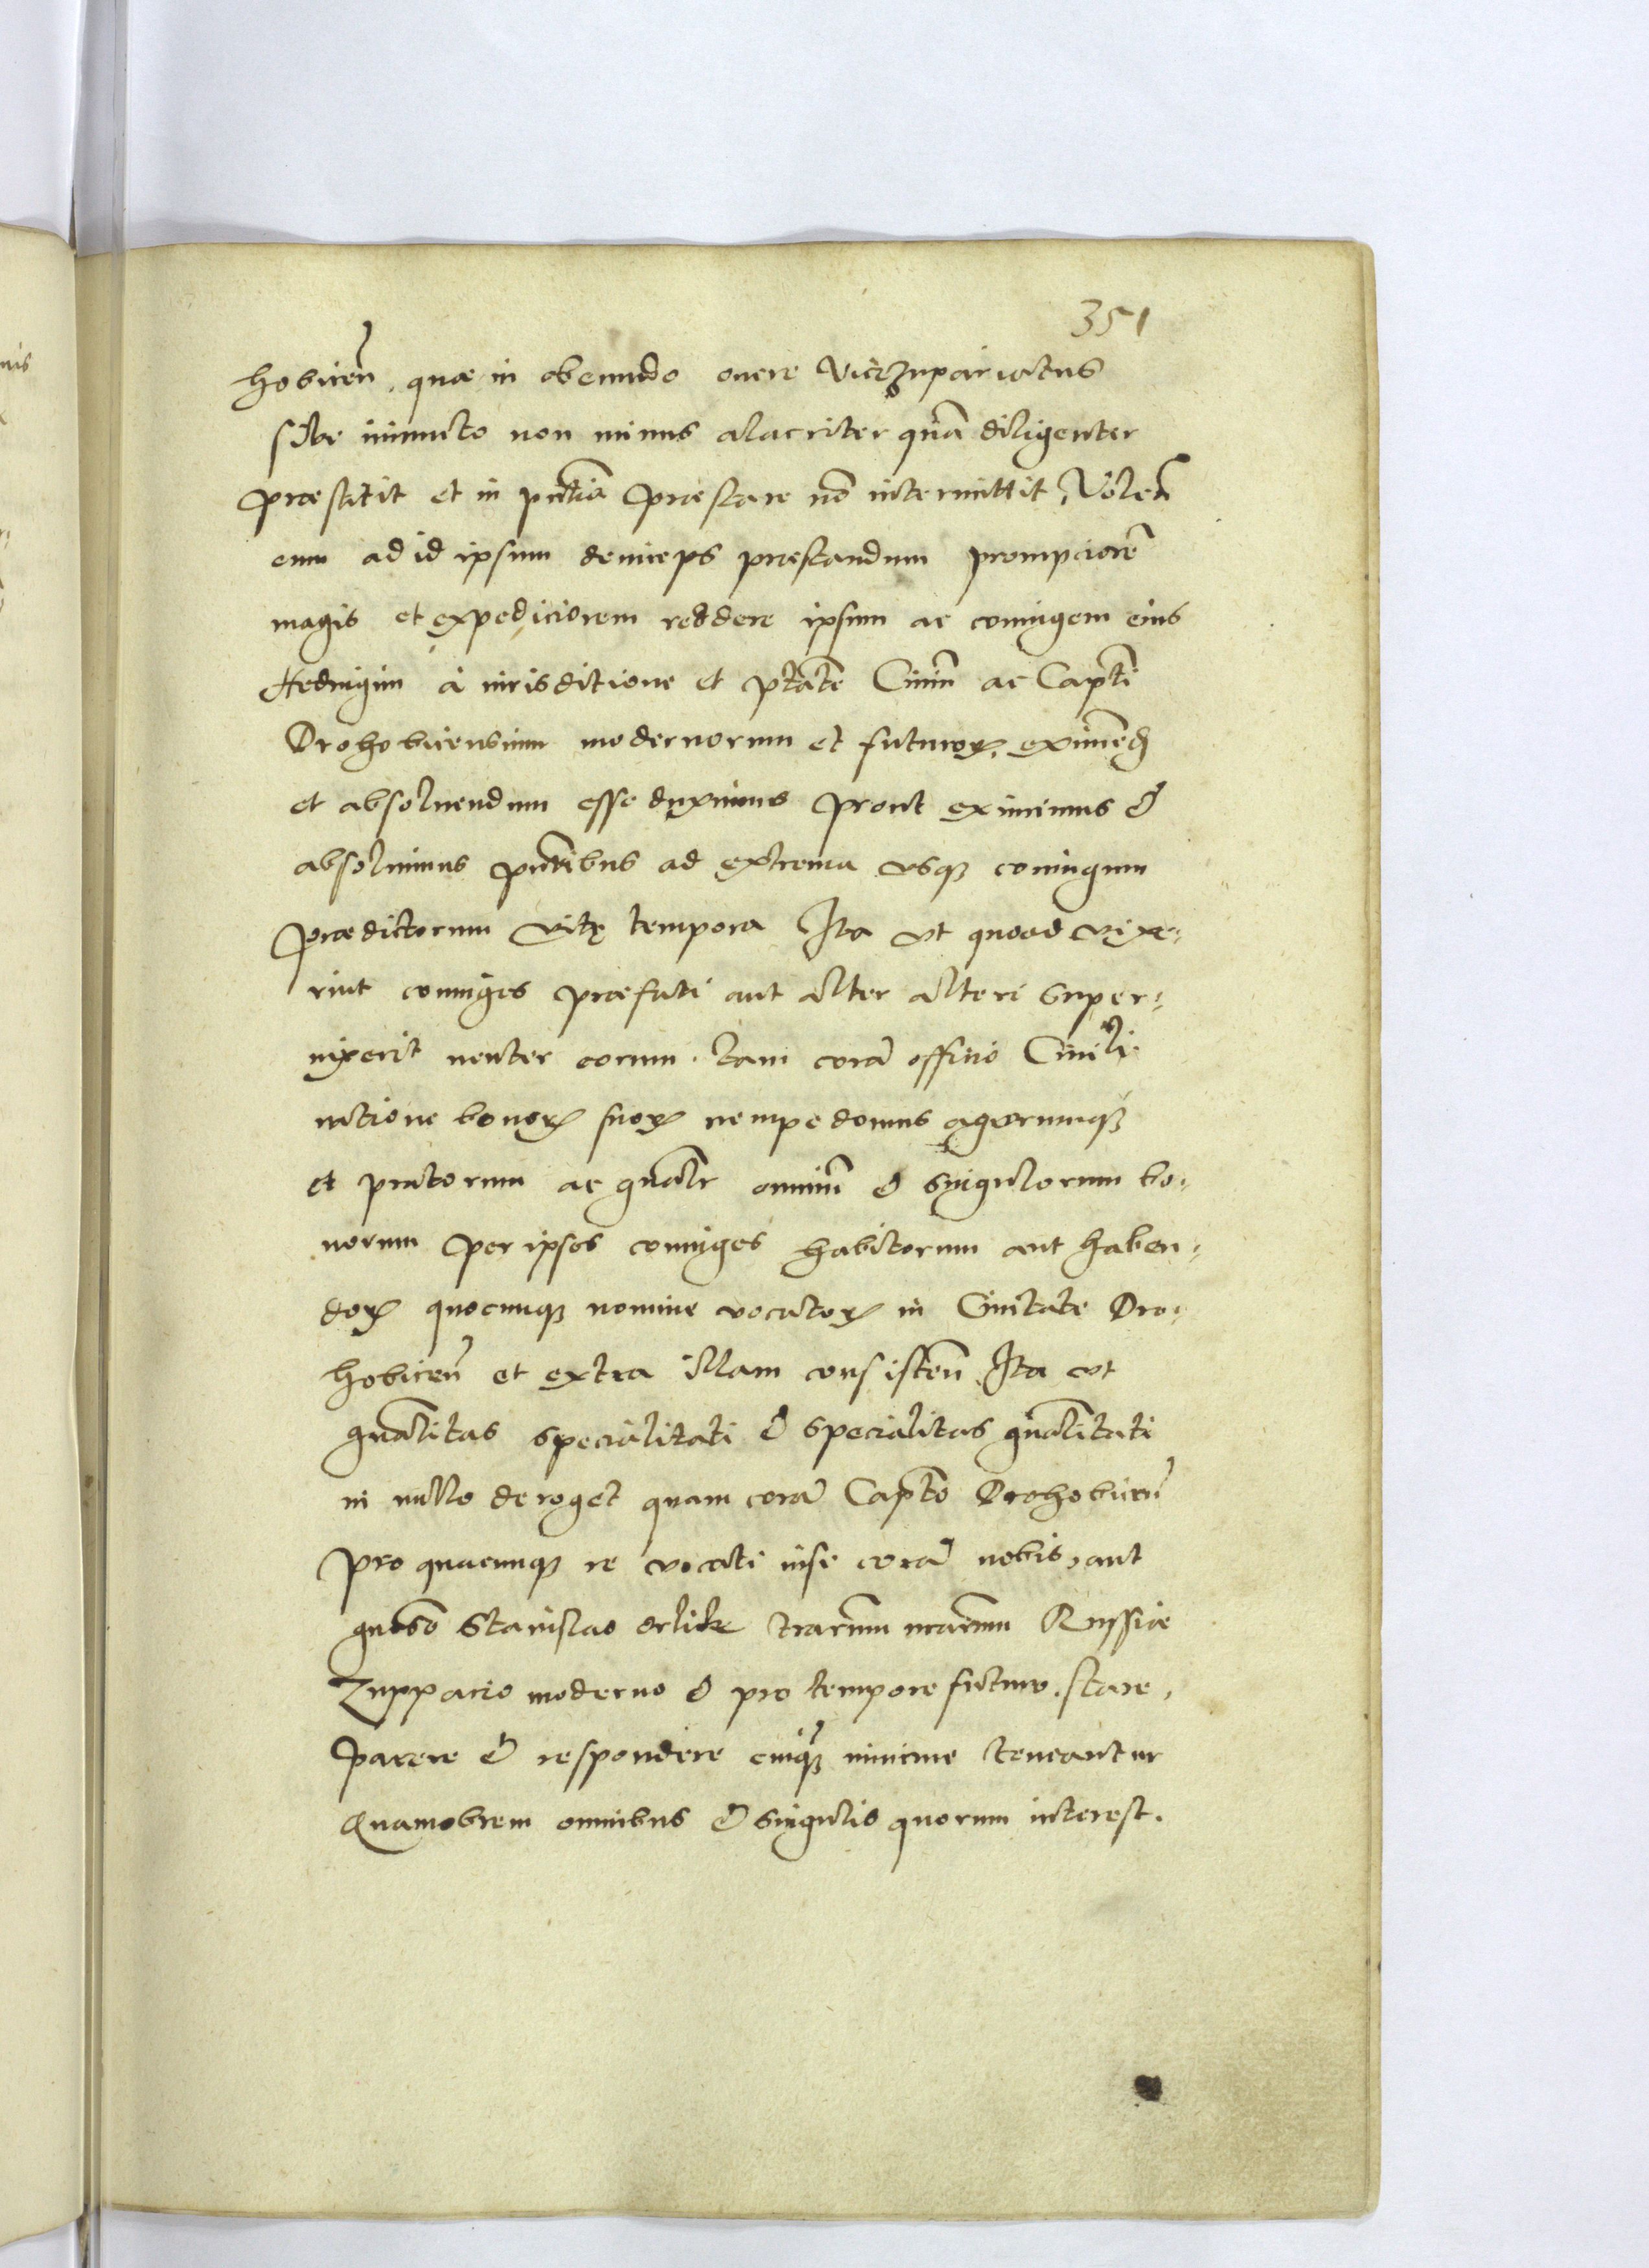 351
hobicen̄, quæ in obeundo onere Vicezupariatus
sibi iniuncto non minus alacriter quā diligenter
præstitit et in pn̄tia præstare nō intermittit, Volen̄
eum ad id ipsum deinceps præstandum prompciorē
magis et expediciorem reddere ipsum ac coniugem eius
Hedvigim à iurisditione et ptāte Ciuiū ac Captī
Drohobicensium modernorum et futuroꝝ eximēd
et absoluendum esse duximus prout eximimus &
absoluimus pn̄tibus ad extrema vsqꝫ coniugum
prædictorum vitę tempora Ita vt quoad vixe=
rint coniuges præfati aut alter alteri super=
uixerit neuter eorum tam corā officio Ciuili
ratione bonoꝝ suoꝝ nempe domus agrorumqꝫ
et pratorum ac gn̄alr omniū & singulorum bo=
norum per ipsos coniuges habitorum aut haben=
doꝝ quocunqꝫ nomine vocatoꝝ in Ciuitate Dro=
hobicen̄ et extra illam consisten̄ Ita vt
gn̄alitas specialitati & specialitas gn̄alitati
in nullo deroget quam corā Captō Drohobicen̄
pro quacunqꝫ re vocati nisi corā nobis, aut
gn̄oso Stanislao orlik trarum nrarum Russiæ
Zuppario moderno & pro tempore futuro. stare,
parere & respondere cuiqꝫ minime teneantur
Quamobrem omnibus & singulis quorum interest.
nis